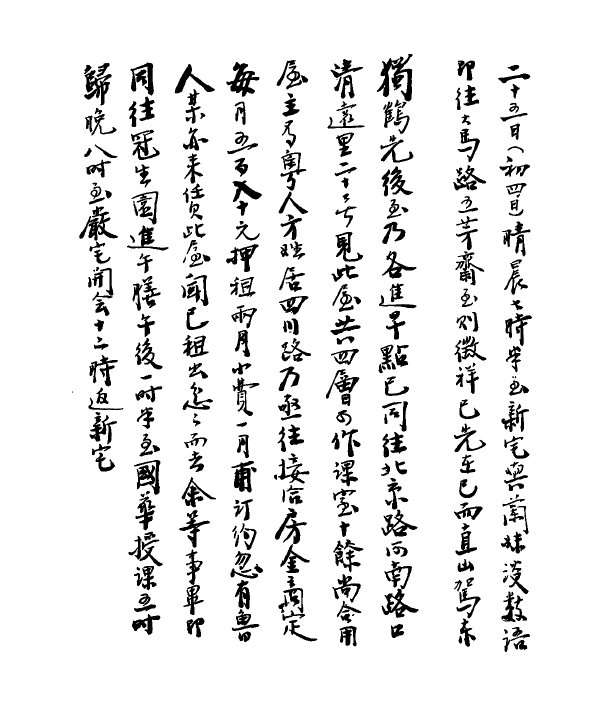 二十五日(初四日)晴晨七時半至新宅與蘭妹談數語
即往大馬路五芳齋至則徵祥已先在已而直山駕來
獨鶴先後至乃各進早點已同往北京路河南路口
清遠里二十六號見此屋共四層可作課室十餘尚合用
屋主為粵人方姓居四川路乃亟往接洽房金商定
每月五百八十元押租兩月小費一月甫訂約忽有魯
人某亦來賃此屋聞已租出怱怱而去余等事畢即
同往冠生園進午膳午後一時半至國華授課五時
歸晚八時至嚴宅開会十二時返新宅